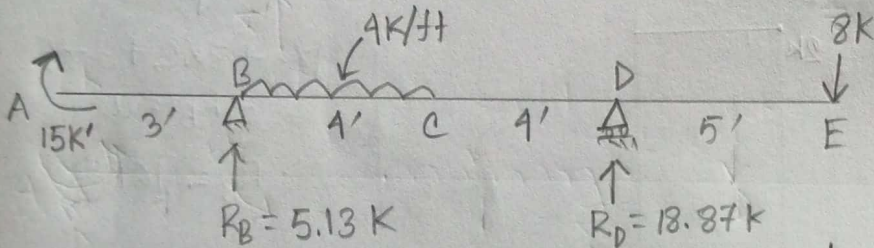 4K/ft
8K
B
D
A
15K'
3'
4'
C
4'
5'
E
R_B = 5.13 K
R_D = 18.87K